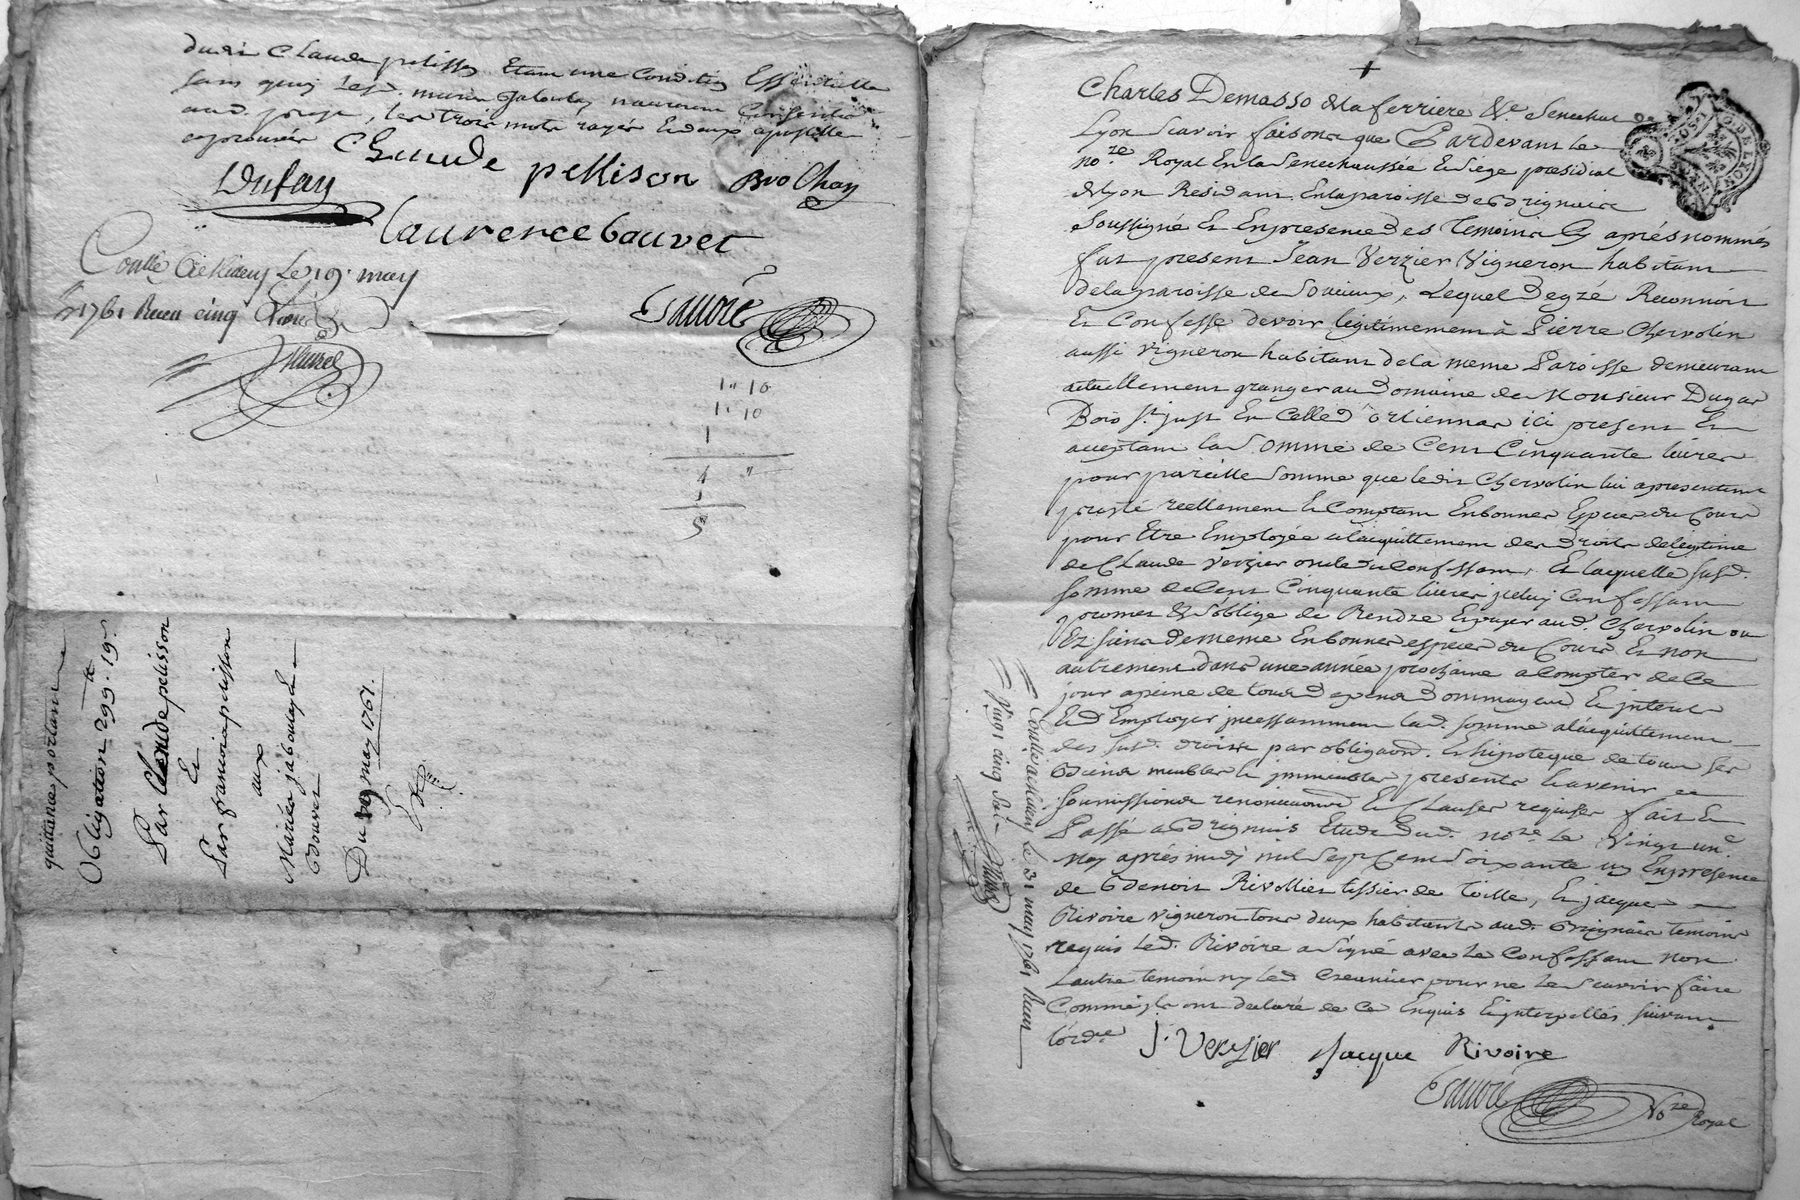 dudit Claude pelisson Etant une Condition Essentielle
sans quoy Led. marie Jaboulay n'auroient Consentie
aud. , les trois mots rayés Et deux apostille
approuvés Claude pellison Brochay
Dufay
Laurence bouvet
Contlé à le 19. may
1761 Receu cinq
Esauvré
1 " 10
1. 10
1
4 "
1
5
quittance portant
Obligation 299tt. 19s.
Par Claude pelisson
Et
Par francois pelisson
aux
Mariés jaboulay &
Bouvet
Du 19 may 1761.
Charles Demasso dela ferriere &c. Senechal de
Lyon scavoir faisons que Pardevant le
nore. Royal En la Senechaussée Et Siége presidial
de Lyon Residant En la paroisse de Brignais
Soussigné Et En presence des Temoins Cy aprés nommés
fut present Jean Verzier Vigneron habitant
dela paroisse de Soucieux, Lequel De gré Reconnoit
Et Confesse devoir légitimement à Pierre Chervolin
aussi vigneron habitant dela meme Paroisse demeurant
actuellement granger au Domaine de Monsieur Dugas
Bois St. just En Celle D'orliennas ici present Et
acceptant la Somme de Cent Cinquante livres
pour pareille Somme que ledit Chervolin lui a presentement
presté réellement Et Comptant En bonnes Especes du Cours
pour Etre Employée a l'acquittement des Droits de legitime
de Claude Verzier oncle du Confessant, Et laquelle susd.
somme de Cent Cinquante livres iceluy Confessant
promet & s'oblige de Rendre Et payer aud. Chervolin ou
Es siens de meme En bonnes especes du Cours Et non
autrement dans une année prochaine a Compter de Ce
jour a peine de tous depens dommages Et interets
Et d'Employer incessamment lad. somme a l'acquittement
des susd. droits par obligaon. Et hipoteque de tous ses
Biens meubles Et immeubles presents Et avenir
soumissions renonciaons Et Clauses requises fait Et
Passé a Brignais Etude Dud. nore Le Vingt un e
May aprés midy mil Sept Cent Soixante un En presence
de Benoit Rivollier tissier de Toille, Et jacques
Rivoire vigneron tous deux habitants aud. Brignais temoins
requis Led. Rivoire a Signé avec Le Confessant non
Lautre temoin ny Led. Creancier pour ne Le Scavoir faire
Comme ils ont declaré de Ce Enquis Et interpellés suivant
l'ord.e
J. Verzier Jacque Rivoire
Esauvré Nore Royal
Contlé a Le 31 may 1761 Receu
vingt cinq Sols